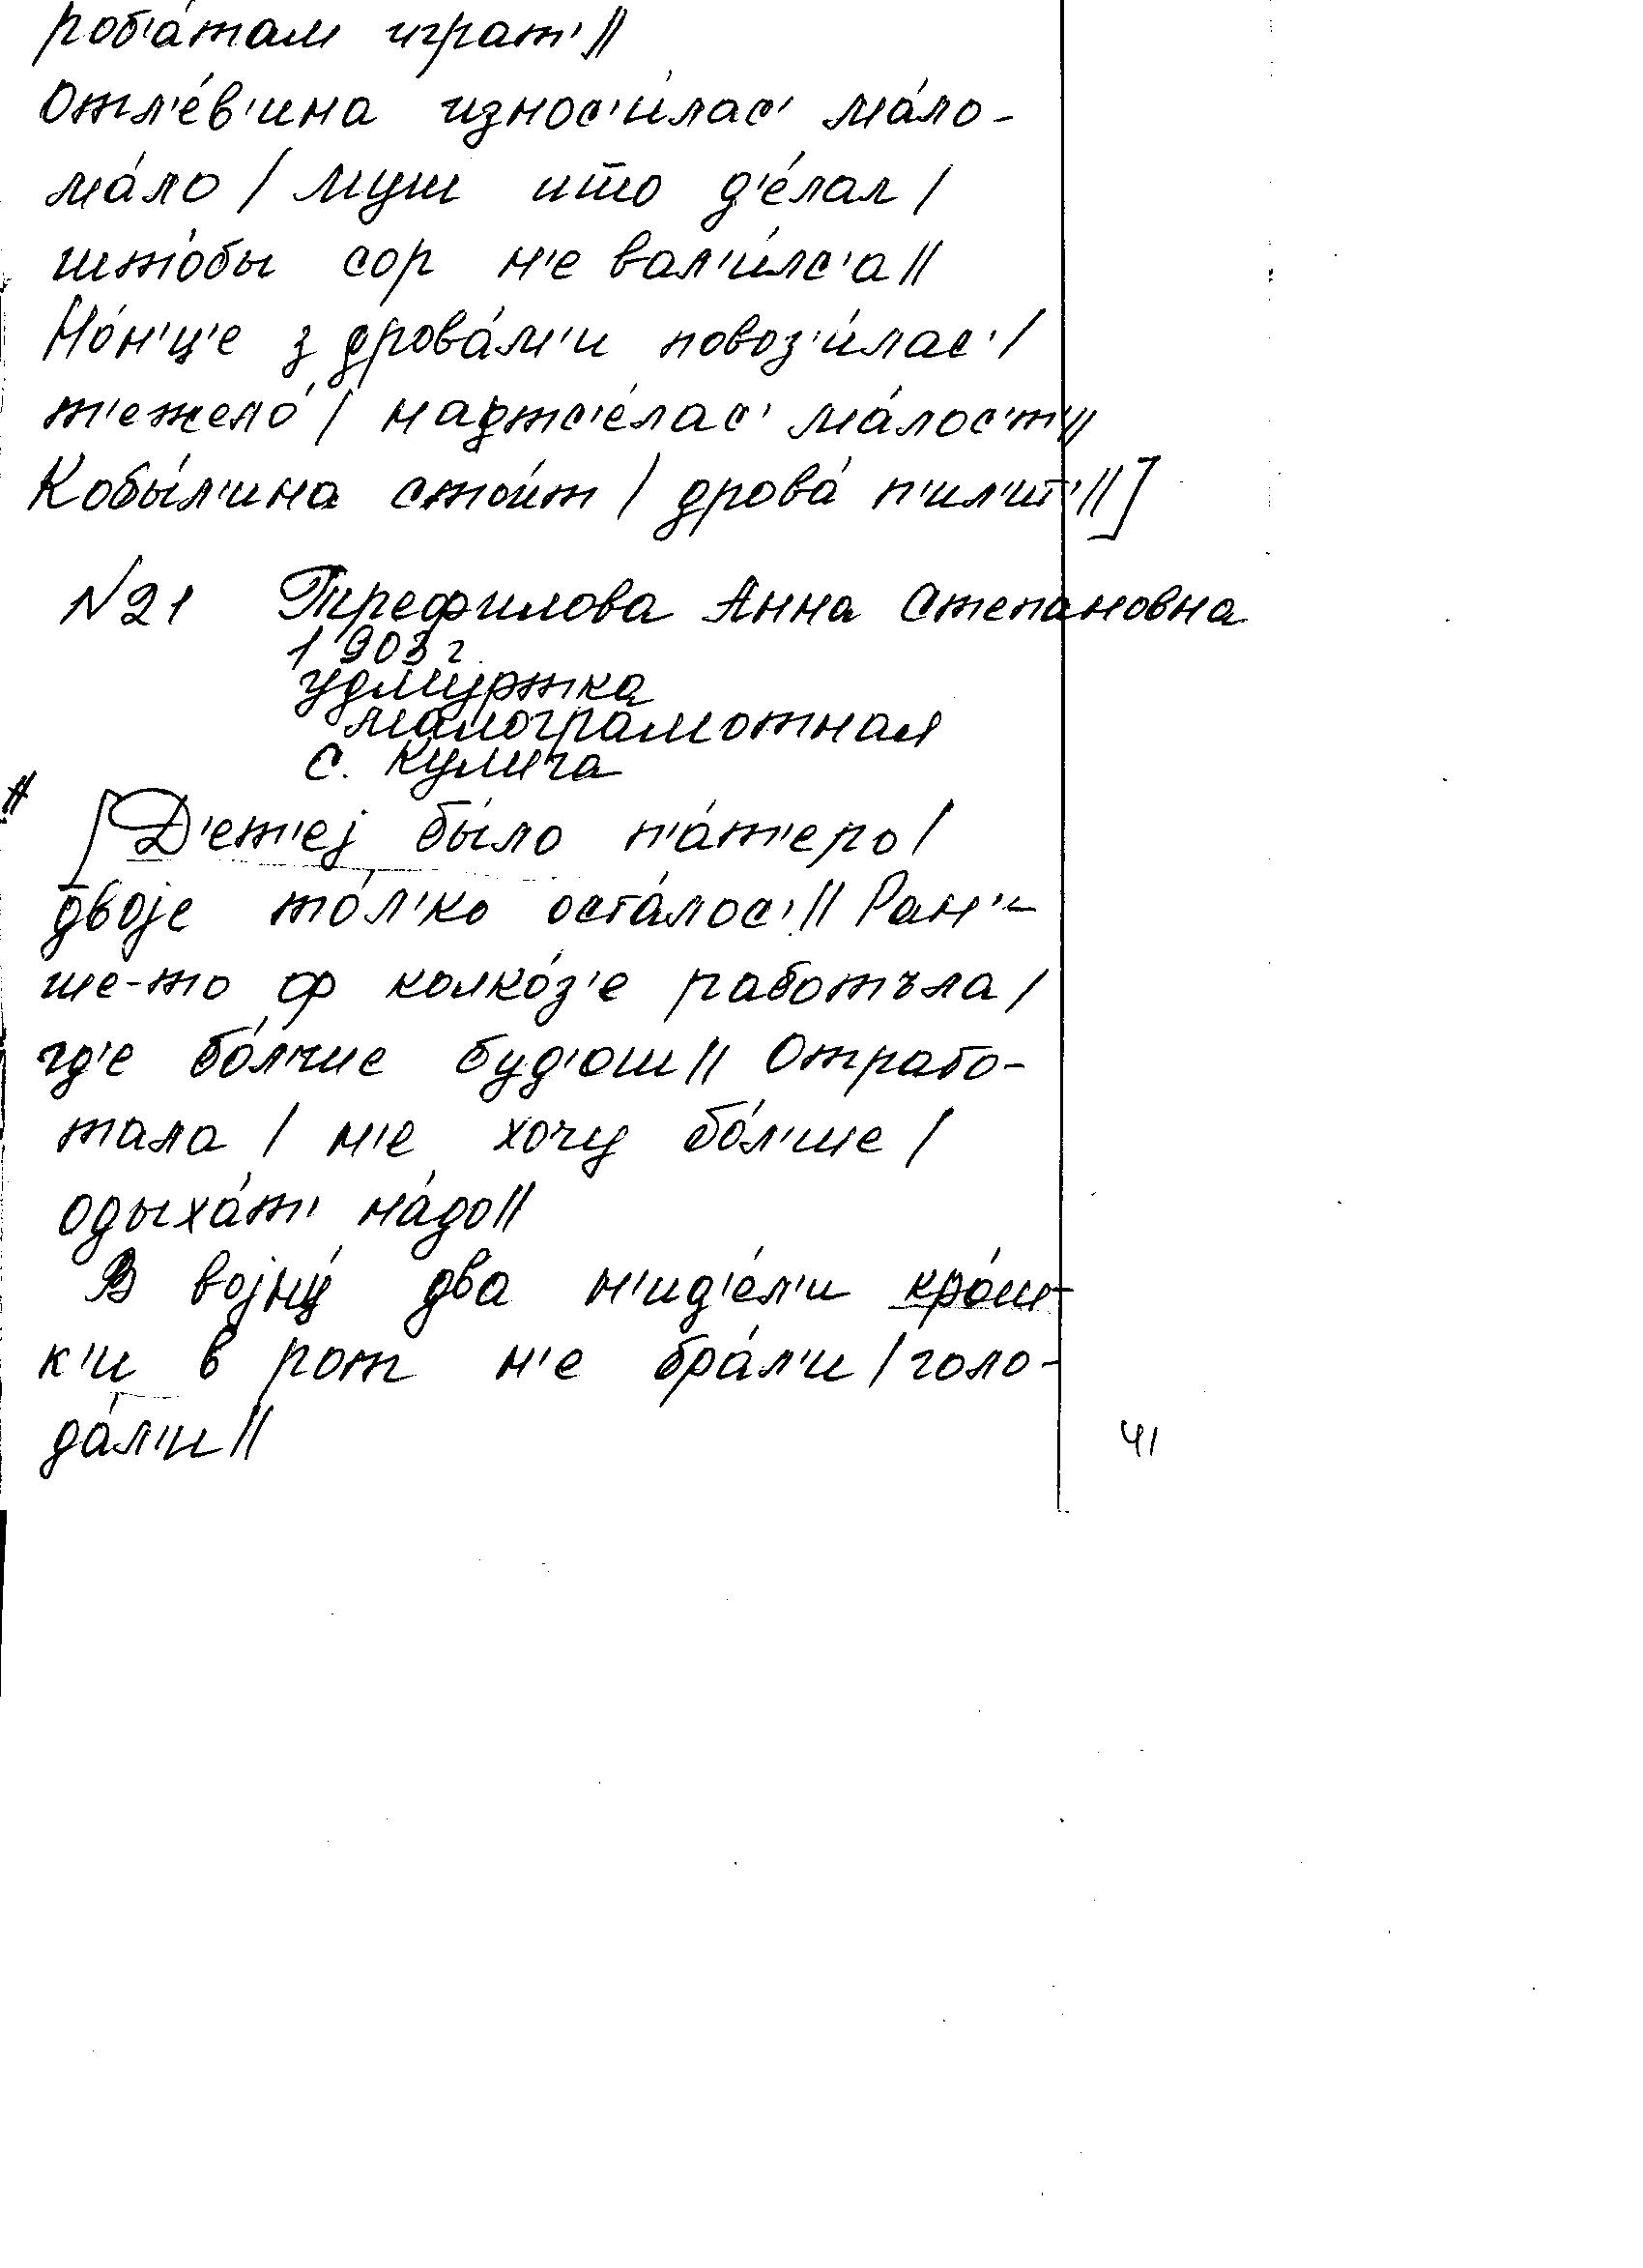 роб'а́там играт'//
Отл'е́в'ина износ'и́лас' ма́ло-
ма́ло / муш што д'е́лал /
што́бы сор н'е вал'и́лс'а //
Но́н'ц'е з дрова́м'и повоз'и́лас' /
т'ежело́ / надтс'е́лас' ма́лос'т' //
Кобы́л'ина стои́т / дрова́ п'ил'ит' // ]
№21 Трефилова Анна Степановна
1903 г.
удмуртка
малограмотная
с. Кулига
# [ Д'ет'еј бы́ло п'а́т'еро /
двоје то́л'ко оста́лос' // Ран'-
ше-то ф колко́з'е работъла /
гд'е бо́л'ше буд'ош // Отрабо-
тала / н'е хочу бо́л'ше /
одыха́т' на́до //
В војну́ два н'ид'е́л'и кро́ш-
к'и в рот н'е бра́л'и / голо-
да́л'и //
41